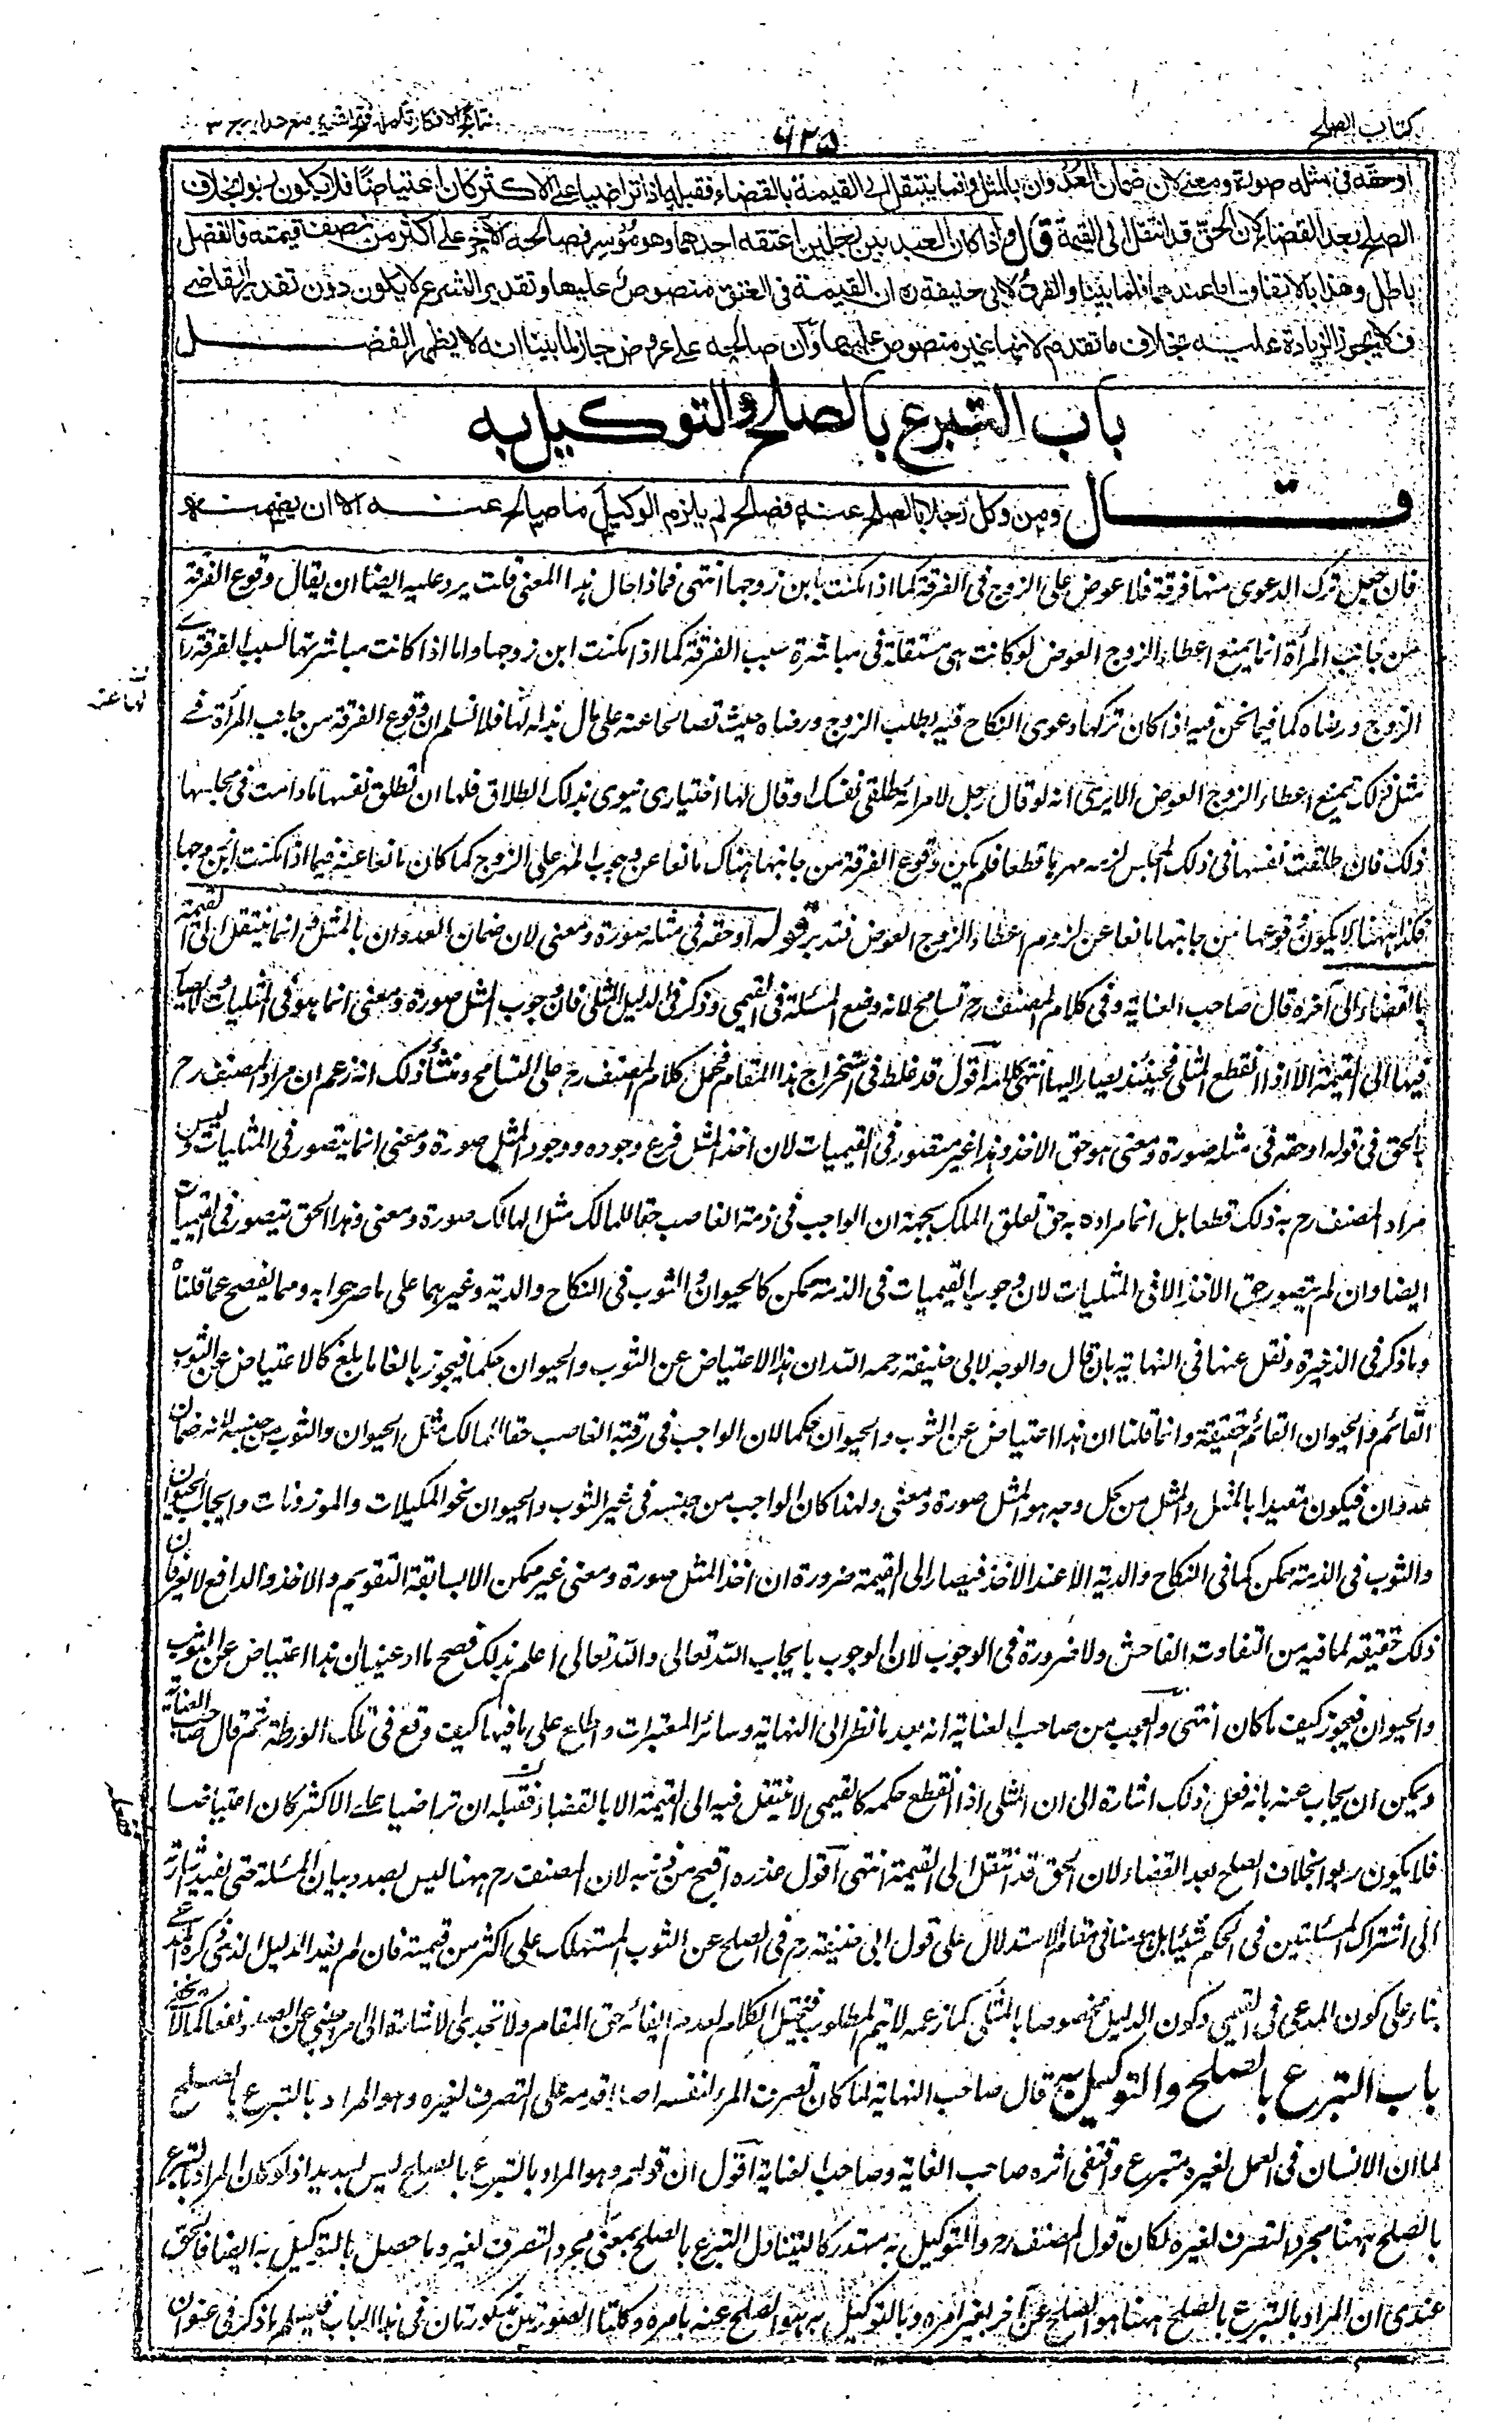 كتاب الصلح
٦٢٥
نتائج الافكار تكملة فتح القدير مع هدايه ج ٣
اوحقه فى مثله صورة ومعنى لان ضمان العدوان بالمثل وانما ينتقل الى القيمة بالقضاء فقبله اذا تراضيا على الاكثر كان اعتياضا فلا يكون ربوا بخلاف
الصلح بعد القضاء لان الحق قد انتقل الى القيمة قال واذا كان العبد بين رجلين اعتقه احدهما وهو موسر فصالحه الآخر على اكثر من نصف قيمته فالفضل
باطل وهذا بالاتفاق اما عندهما فلما بينا والفرق لابى حنيفة ره ان القيمة فى العتق منصوص عليها وتقدير الشرع لا يكون دون تقدير القاضى
فلا يجوز الزيادة عليه بخلاف ما تقدم لانها غير منصوص عليها وان صالحه على عروض جاز لما بينا انه لا يظهر الفضل
باب التبرع بالصلح والتوكيل به
قال ومن وكل رجلا بالصلح عنه فصالح لم يلزم الوكيل ما صالح عنه الا ان يضمنه
فان جعل ترك الدعوى منها فرقة فلا عوض على الزوج فى الفرقة كما اذا مكنت بابن زوجها انتهى فماذا حال هذا المعنى قلت يرد عليه ايضا ان يقال وقوع الفرقة
من جانب المرأة انما يمنع اعطاء الزوج العوض لو كانت هى مستقلة فى مباشرة سبب الفرقة كما اذا مكنت ابن زوجها واما اذا كانت مباشرتها لسبب الفرقة برأى
الزوج ورضاه كما فيما نحن فيه اذا كان تركها دعوى النكاح فيه بطلب الزوج ورضاه حيث تصالحا عنه على مال بذله لها فلا نسلم ان وقوع الفرقة من جانب المرأة فى
مثل ذلك يمنع اعطاء الزوج العوض الا يرى انه لو قال رجل لامرأته طلقى نفسك او قال لها اختيارى ينوى بذلك الطلاق فلها ان تطلق نفسها ما دامت فى مجلسها
ذلك فان طلقت نفسها فى ذلك المجلس لزمه مهرها قطعا فلم يكن وقوع الفرقة من جانبها هناك مانعا عن وجوب المهر على الزوج كما كان مانعا عنه فيما اذا مكنت ابن زوجها
فكذا ههنا لا يكون وقوعها من جانبها مانعا عن لزوم اعطاء الزوج العوض فتدبر قوله اوحقه فى مثله صورة ومعنى لان ضمان العدوان بالمثل وانما ينتقل الى القيمة
بالقضاء الى آخره قال صاحب العناية وفى كلام المصنف رح تسامح لانه وضع المسئلة فى القيمى وذكر فى الدليل المثلى فان وجوب المثل صورة ومعنى انما هو فى المثليات ولا يصار
فيها الى القيمة الا اذا انقطع المثلى فحينئذ يصار اليها انتهى كلامه اقول قد غلط فى استخراج هذا المقام فحمل كلام المصنف رح على التسامح ومنشأ ذلك انه زعم ان مراد المصنف رح
بالحق فى قوله او حقه فى مثله صورة ومعنى هو حق الاخذ وهذا غير متصور فى القيميات لان اخذ المثل فرع وجوده ووجود المثل صورة ومعنى انما يتصور فى المثليات وليس
مراد المصنف رح به ذلك قطعا بل انما مراده به حق تعلق الملك بجهة ان الواجب فى ذمة الغاصب حقا للمالك مثل الهالك صورة ومعنى وهذا الحق يتصور فى القيميات
ايضا وان لم يتصور حق الاخذ الا فى المثليات لان وجوب القيميات فى الذمة ممكن كالحيوان والثوب فى النكاح والدية وغيرهما على ما صرحوا به ومما يفصح عما قلناه
ما ذكر فى الذخيرة ونقل عنها فى النهاية بان قال والوجه لابى حنيفة رحمه الله ان هذا الاعتياض عن الثوب والحيوان حكما فيجوز بالغا ما بلغ كالاعتياض عن الثوب
القائم والحيوان القائم حقيقة وانما قلنا ان هذا اعتياض عن الثوب والحيوان حكما لان الواجب فى رقبة الغاصب حقا للمالك مثل الحيوان والثوب من جنسه لانه ضمان
عدوان فيكون مقيدا بالمثل والمثل من كل وجه هو المثل صورة ومعنى ولهذا كان الواجب من جنسه فى غير الثوب والحيوان نحو المكيلات والموزونات وايجاب الحيوان
والثوب فى الذمة ممكن كما فى النكاح والدية الا عند الاخذ فيصار الى القيمة ضرورة ان اخذ المثل صورة ومعنى غير ممكن الا بسابقة التقويم والاخذ والدافع لا يعرفان
ذلك حقيقة لما فيه من التفاوت الفاحش ولا ضرورة فى الوجوب لان الوجوب بايجاب الله تعالى والله تعالى اعلم بذلك فصح ما ادعينا ان هذا اعتياض عن الثوب
والحيوان فيجوز كيف ما كان انتهى والعجب من صاحب العناية انه بعد ما نظر الى النهاية وسائر المعتبرات واطلع على ما فيها كيف وقع فى تلك الورطة ثم قال صاحب العناية
ويمكن ان يجاب عنه بانه فعل ذلك اشارة الى ان المثلى اذا انقطع حكمه كالقيمى لا ينتقل فيه الى القيمة الا بالقضاء فقبله ان تراضيا على الاكثر كان اعتياضا
فلا يكون ربوا بخلاف الصلح بعد القضاء لان الحق قد انتقل الى القيمة انتهى اقول عذره اقبح من ذنبه لان المصنف رح ههنا ليس بصدد بيان المسئلة حتى يفيد اشارته
الى اشتراك المسئلتين فى الحكم شيئا بل هو ههنا فى مقام الاستدلال على قول ابى حنيفة رح فى الصلح عن الثوب المستهلك على اكثر من قيمته فان لم يفد الدليل الذى ذكره المدعى
بناء على كون المدعى فى القيمى وكون الدليل مخصوصا بالمثلى كما زعمه لا يتم المطلوب فيختل الكلام لعدم ايفائه حق المقام ولا تجدى الاشارة الى
باب التبرع بالصلح والتوكيل به قال صاحب النهاية لما كان تصرف المرء لنفسه اصلا قدمه على التصرف لغيره وهو المراد بالتبرع بالصلح
لما ان الانسان فى العمل لغيره متبرع واقتفى اثره صاحب الغاية وصاحب العناية اقول ان قولهم وهو المراد بالتبرع بالصلح ليس بسديد اذ لو كان المراد بالتبرع
بالصلح ههنا مجرد التصرف لغيره لكان قول المصنف رح والتوكيل به مستدركا لتناول التبرع بالصلح بمعنى مجرد التصرف لغيره ما حصل بالتوكيل به ايضا فالحق
عندى ان المراد بالتبرع بالصلح ههنا هو الصلح عن آخر بغير امره وبالتوكيل به هو الصلح عنه بامره وكلتا الصورتين مذكورتان فى هذا الباب فيسلم ما ذكر فى عنوان